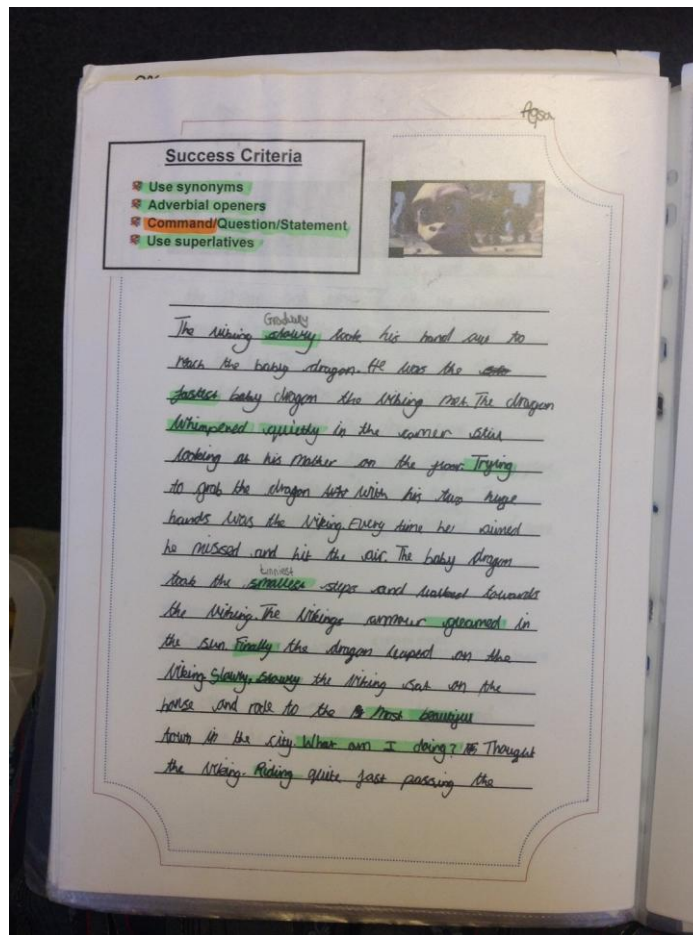 Aqsa
Success Criteria
Use synonyms
Adverbial openers
Command/Question/Statement
Use superlatives
Gradually
The viking slowly took his hand out to
reach the baby dragon. He was the
fastest baby dragon the viking met. The dragon
whimpered quietly in the corner still
looking at his mother on the floor. Trying
to grab the dragon with his two huge
hands was the Viking. Every time he aimed
he missed and hit the air. The baby dragon
tinniest
took the smallest steps and walked towards
the viking. The Vikings armour gleamed in
the sun. Finally the dragon leaped on the
Viking. Slowly, slowly the viking sat on the
horse and rode to the most beautiful
town in the city. What am I doing? Thought
the viking. Riding quite fast passing the